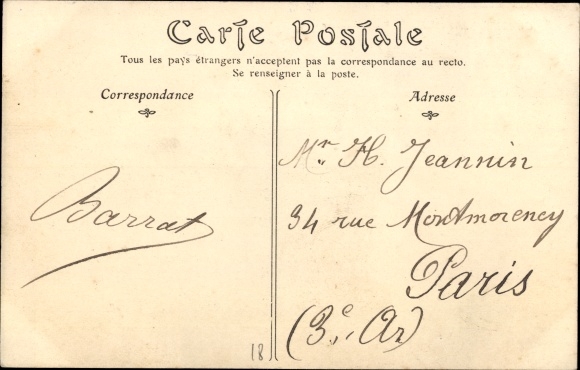 Carte Postale
Tous les pays étrangers n'acceptent pas la correspondance au recto.
Se renseigner à la poste.
Correspondance
Adresse
Barrat
Mr. H. Jeannin
34 rue Montmorency
Paris
(3e. Ar)
18